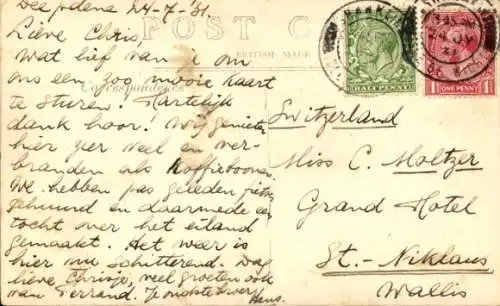 Deepdene 24-7-'31.
POST C
BRITISH MADE
Correspondence
Lieve Chris,
Wat lief van je om
ons een zoo mooie kaart
te sturen! Hartelijk
dank hoor! Wij genieten
hier zeer veel en ver-
branden als koffieboonen.
We hebben pas geleden fietsen
gehuurd en daarmede een
tocht over het eiland
gemaakt. Het weer is
hier nu schitterend. Dag
lieve Chrisje, veel groeten ook
van Ferrand. Je
Hans.
HALFPENNY
ONE PENNY
Switzerland
Miss C. Moltzer
Grand Hotel
St.-Niklaus
Wallis